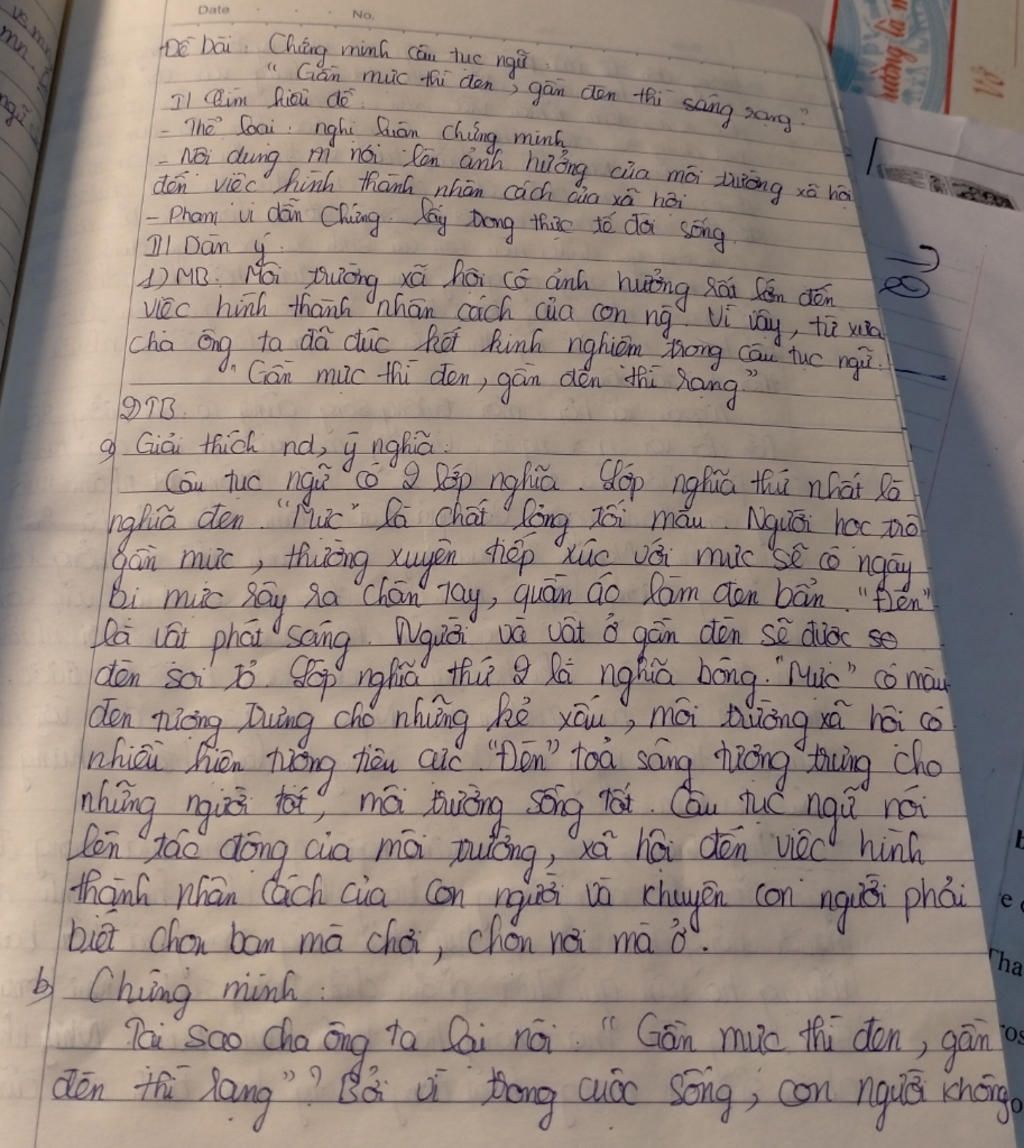 Date No.
Đề bài: Chứng minh câu tục ngữ:
"Gần mực thì đen, gần đèn thì sáng rạng."
I/ Tìm hiểu đề
- Thể loại: nghị luận chứng minh
- Nội dung nói lên ảnh hưởng của môi trường xã hội
đến việc hình thành nhân cách của xã hội
- Phạm vi dẫn chứng: lấy trong thực tế đời sống
II/ Dàn ý:
1) MB: Môi trường xã hội có ảnh hưởng rất lớn đến
việc hình thành nhân cách của con ng. Vì vậy, từ xưa
cha ông ta đã đúc kết kinh nghiệm trong câu tục ngữ:
"Gần mực thì đen, gần đèn thì rạng"
2) TB
a) Giải thích nd, ý nghĩa:
Câu tục ngữ có 2 lớp nghĩa. Lớp nghĩa thứ nhất là
nghĩa đen. "Mực" là chất lỏng tối màu. Người học trò
gần mực, thường xuyên tiếp xúc với mực sẽ có ngày
bị mực rây ra chân tay, quần áo làm đen bẩn. "Đèn"
là vật phát sáng. Người và vật ở gần đèn sẽ được
đèn soi tỏ. Lớp nghĩa thứ 2 là nghĩa bóng. "Mực" có màu
đen tượng trưng cho những kẻ xấu, môi trường xã hội có
nhiều hiện tượng tiêu cực. "Đèn" toả sáng tượng trưng cho
những người tốt, môi trường sống tốt. Câu tục ngữ nói
lên tác động của môi trường, xã hội đến việc hình
thành nhân cách của con người và khuyên con người phải
biết chọn bạn mà chơi, chọn nơi mà ở.
b) Chứng minh:
Tại sao cha ông ta lại nói: "Gần mực thì đen, gần
đèn thì rạng"? Bởi vì trong cuộc sống, con người không